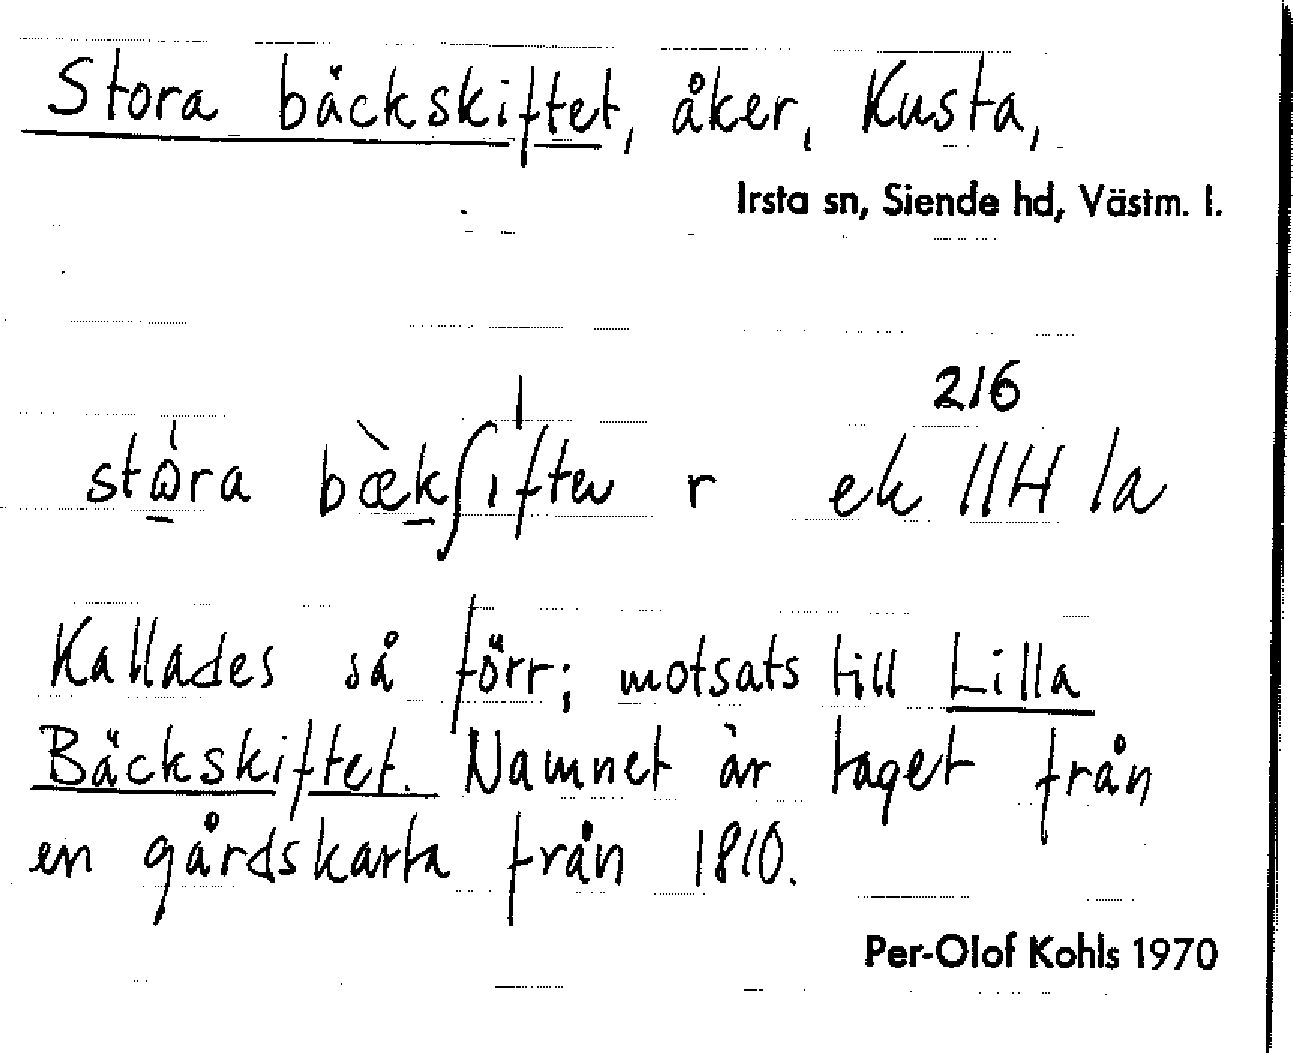 Stora bäckskiftet, åker, Kusta,
Irsta sn, Siende hd, Västm. l.
216
stὼra bæ̀kʃıfteν r ek 11H 1a
Kallades så förr; motsats till Lilla
Bäckskiftet. Namnet är taget från
en gårdskarta från 1810.
Per-Olof Kohls 1970